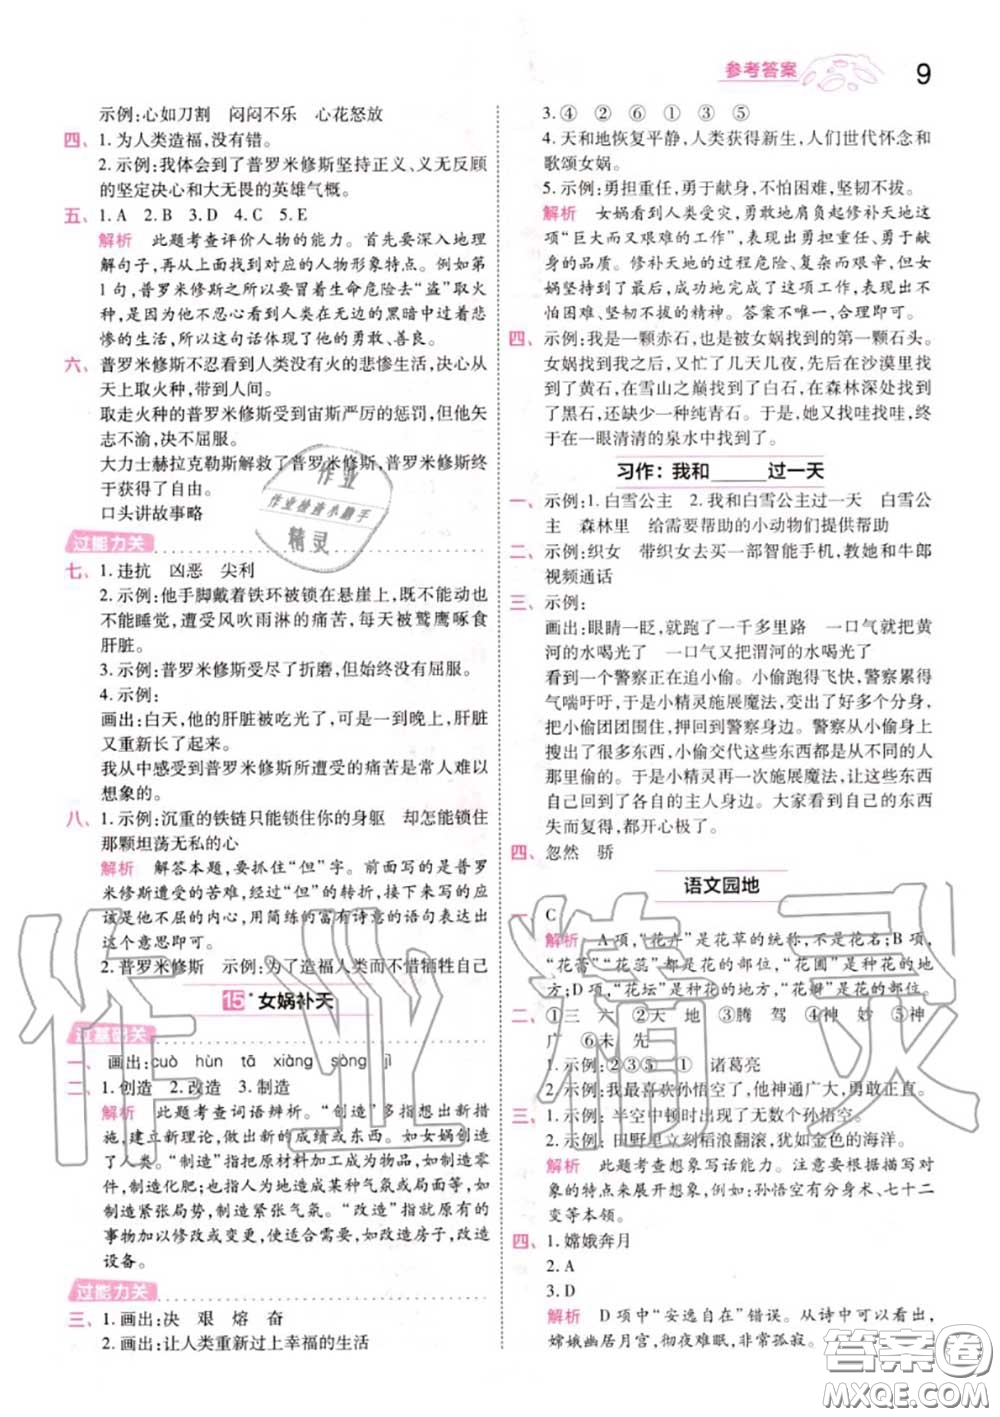 参考答案 9
示例:心如刀割 闷闷不乐 心花怒放
四、1. 为人类造福,没有错。
2. 示例:我体会到了普罗米修斯坚持正义、义无反顾
的坚定决心和大无畏的英雄气概。
五、1. A 2. B 3. D 4. C 5. E
解析 此题考查评价人物的能力。首先要深入地理
解句子,再从上面找到对应的人物形象特点。例如第
1句,普罗米修斯之所以要冒着生命危险去“盗”取火
种,是因为他不忍心看到人类在无边的黑暗中过着悲
惨的生活,所以这句话体现了他的勇敢、善良。
六、普罗米修斯不忍看到人类没有火的悲惨生活,决心从
天上取火种,带到人间。
取走火种的普罗米修斯受到宙斯严厉的惩罚,但他矢
志不渝,决不屈服。
大力士赫拉克勒斯解救了普罗米修斯,普罗米修斯终
于获得了自由。
口头讲故事略
过能力关
七、1. 违抗 凶恶 尖利
2. 示例:他手脚戴着铁环被锁在悬崖上,既不能动也
不能睡觉,遭受风吹雨淋的痛苦,每天被鹫鹰啄食
肝脏。
3. 示例:普罗米修斯受尽了折磨,但始终没有屈服。
4. 示例:
画出:白天,他的肝脏被吃光了,可是一到晚上,肝脏
又重新长了起来。
我从中感受到普罗米修斯所遭受的痛苦是常人难以
想象的。
八、1. 示例:沉重的铁链只能锁住你的身躯 却怎能锁住
那颗坦荡无私的心
解析 解答本题,要抓住“但”字。前面写的是普罗
米修斯遭受的苦难,经过“但”的转折,接下来写的应
该是他不屈的内心,用简练的富有诗意的语句表达出
这个意思即可。
2. 普罗米修斯 示例:为了造福人类而不惜牺牲自己
15* 女娲补天
过基础关
一、画出:cuò hùn tā xiàng sòng jì
二、1. 创造 2. 改造 3. 制造
解析 此题考查词语辨析。“创造”多指想出新措
施,建立新理论,做出新的成绩或东西。如女娲创造
了人类。“制造”指把原材料加工成为物品,如制造零
件,制造化肥;也指造成某种气氛或局面等,如
制造紧张局势,制造紧张气氛。“改造”指就原有的
事物加以修改或变更,使适合需要,如改造房子,改造
设备。
过能力关
三、1. 画出:决 艰 熔 奋
2. 画出:让人类重新过上幸福的生活
3. ④ ② ⑥ ① ③ ⑤
4. 天和地恢复平静,人类获得新生,人们世代怀念和
歌颂女娲。
5. 示例:勇担重任,勇于献身,不怕困难,坚韧不拔。
解析 女娲看到人类受灾,勇敢地肩负起修补天地
这项“巨大而又艰难的工作”,表现出勇担重任、勇于献
身的品质。修补天地的过程危险、复杂而艰辛,但女
娲坚持到了最后,成功地完成了这项工作,表现出不
怕困难、坚韧不拔的精神。答案不唯一,合理即可。
四、示例:我是一颗赤石,也是被女娲找到的第一颗石头。
女娲找到我之后,又忙了几天几夜,先后在沙漠里找
到了黄石,在雪山之巅找到了白石,在森林深处找到
了黑石,还缺少一种纯青石。于是,她又找哇找哇,终
于在一眼清清的泉水中找到了。
习作：我和______过一天
一、示例:1. 白雪公主 2. 我和白雪公主过一天 白雪公
主 森林里 给需要帮助的小动物们提供帮助
二、示例:织女 带织女去买一部智能手机,教她和牛郎
视频通话
三、示例:
画出:眼睛一眨,就走了一千多里路 一口气就把黄
河的水喝光了 一口气又把渭河的水喝光了
看到一个警察正在追小偷。小偷跑得飞快,警察累得
气喘吁吁,于是小精灵施展魔法,变出了好多个分身,
把小偷团团围住,押回到警察身边。警察从小偷身上
搜出了很多东西,小偷交代这些东西都是从不同的人
那里偷的。于是小精灵再一次施展魔法,把这些东西
归还到各自的主人身边。大家看到自己的东西
失而复得,都开心极了。
四、忽然 骄
语文园地
一、C
解析 A项,“花卉”是花草的统称,不是花名;B项,
“花蕾”“花蕊”都是花的部位,“花圃”是种花的地
方;D项,“花坛”是种花的地方,“花瓣”是花的部位。
二、①三 六 ②天 地 ③腾 驾 ④神 妙 ⑤神
广 ⑥未 先
1. 示例:②③⑤ ① 诸葛亮
2. 示例:我最喜欢孙悟空了,他神通广大,勇敢正直。
三、1. 示例:半空中顿时出现了无数个孙悟空。
2. 示例:田野里立刻稻浪翻滚,犹如金色的海洋。
解析 此题考查想象写话能力。要根据描写对
象的特点来展开想象,例如:孙悟空有分身术、七十二
变等本领。
四、1. 嫦娥奔月
2. A
3. D
解析 D项中“安逸自在”错误。从诗中可以看出,
嫦娥幽居月宫,彻夜难眠,非常孤寂。
作业
作业快查小助手
精灵
作业精灵
答案圈
MXQE.COM